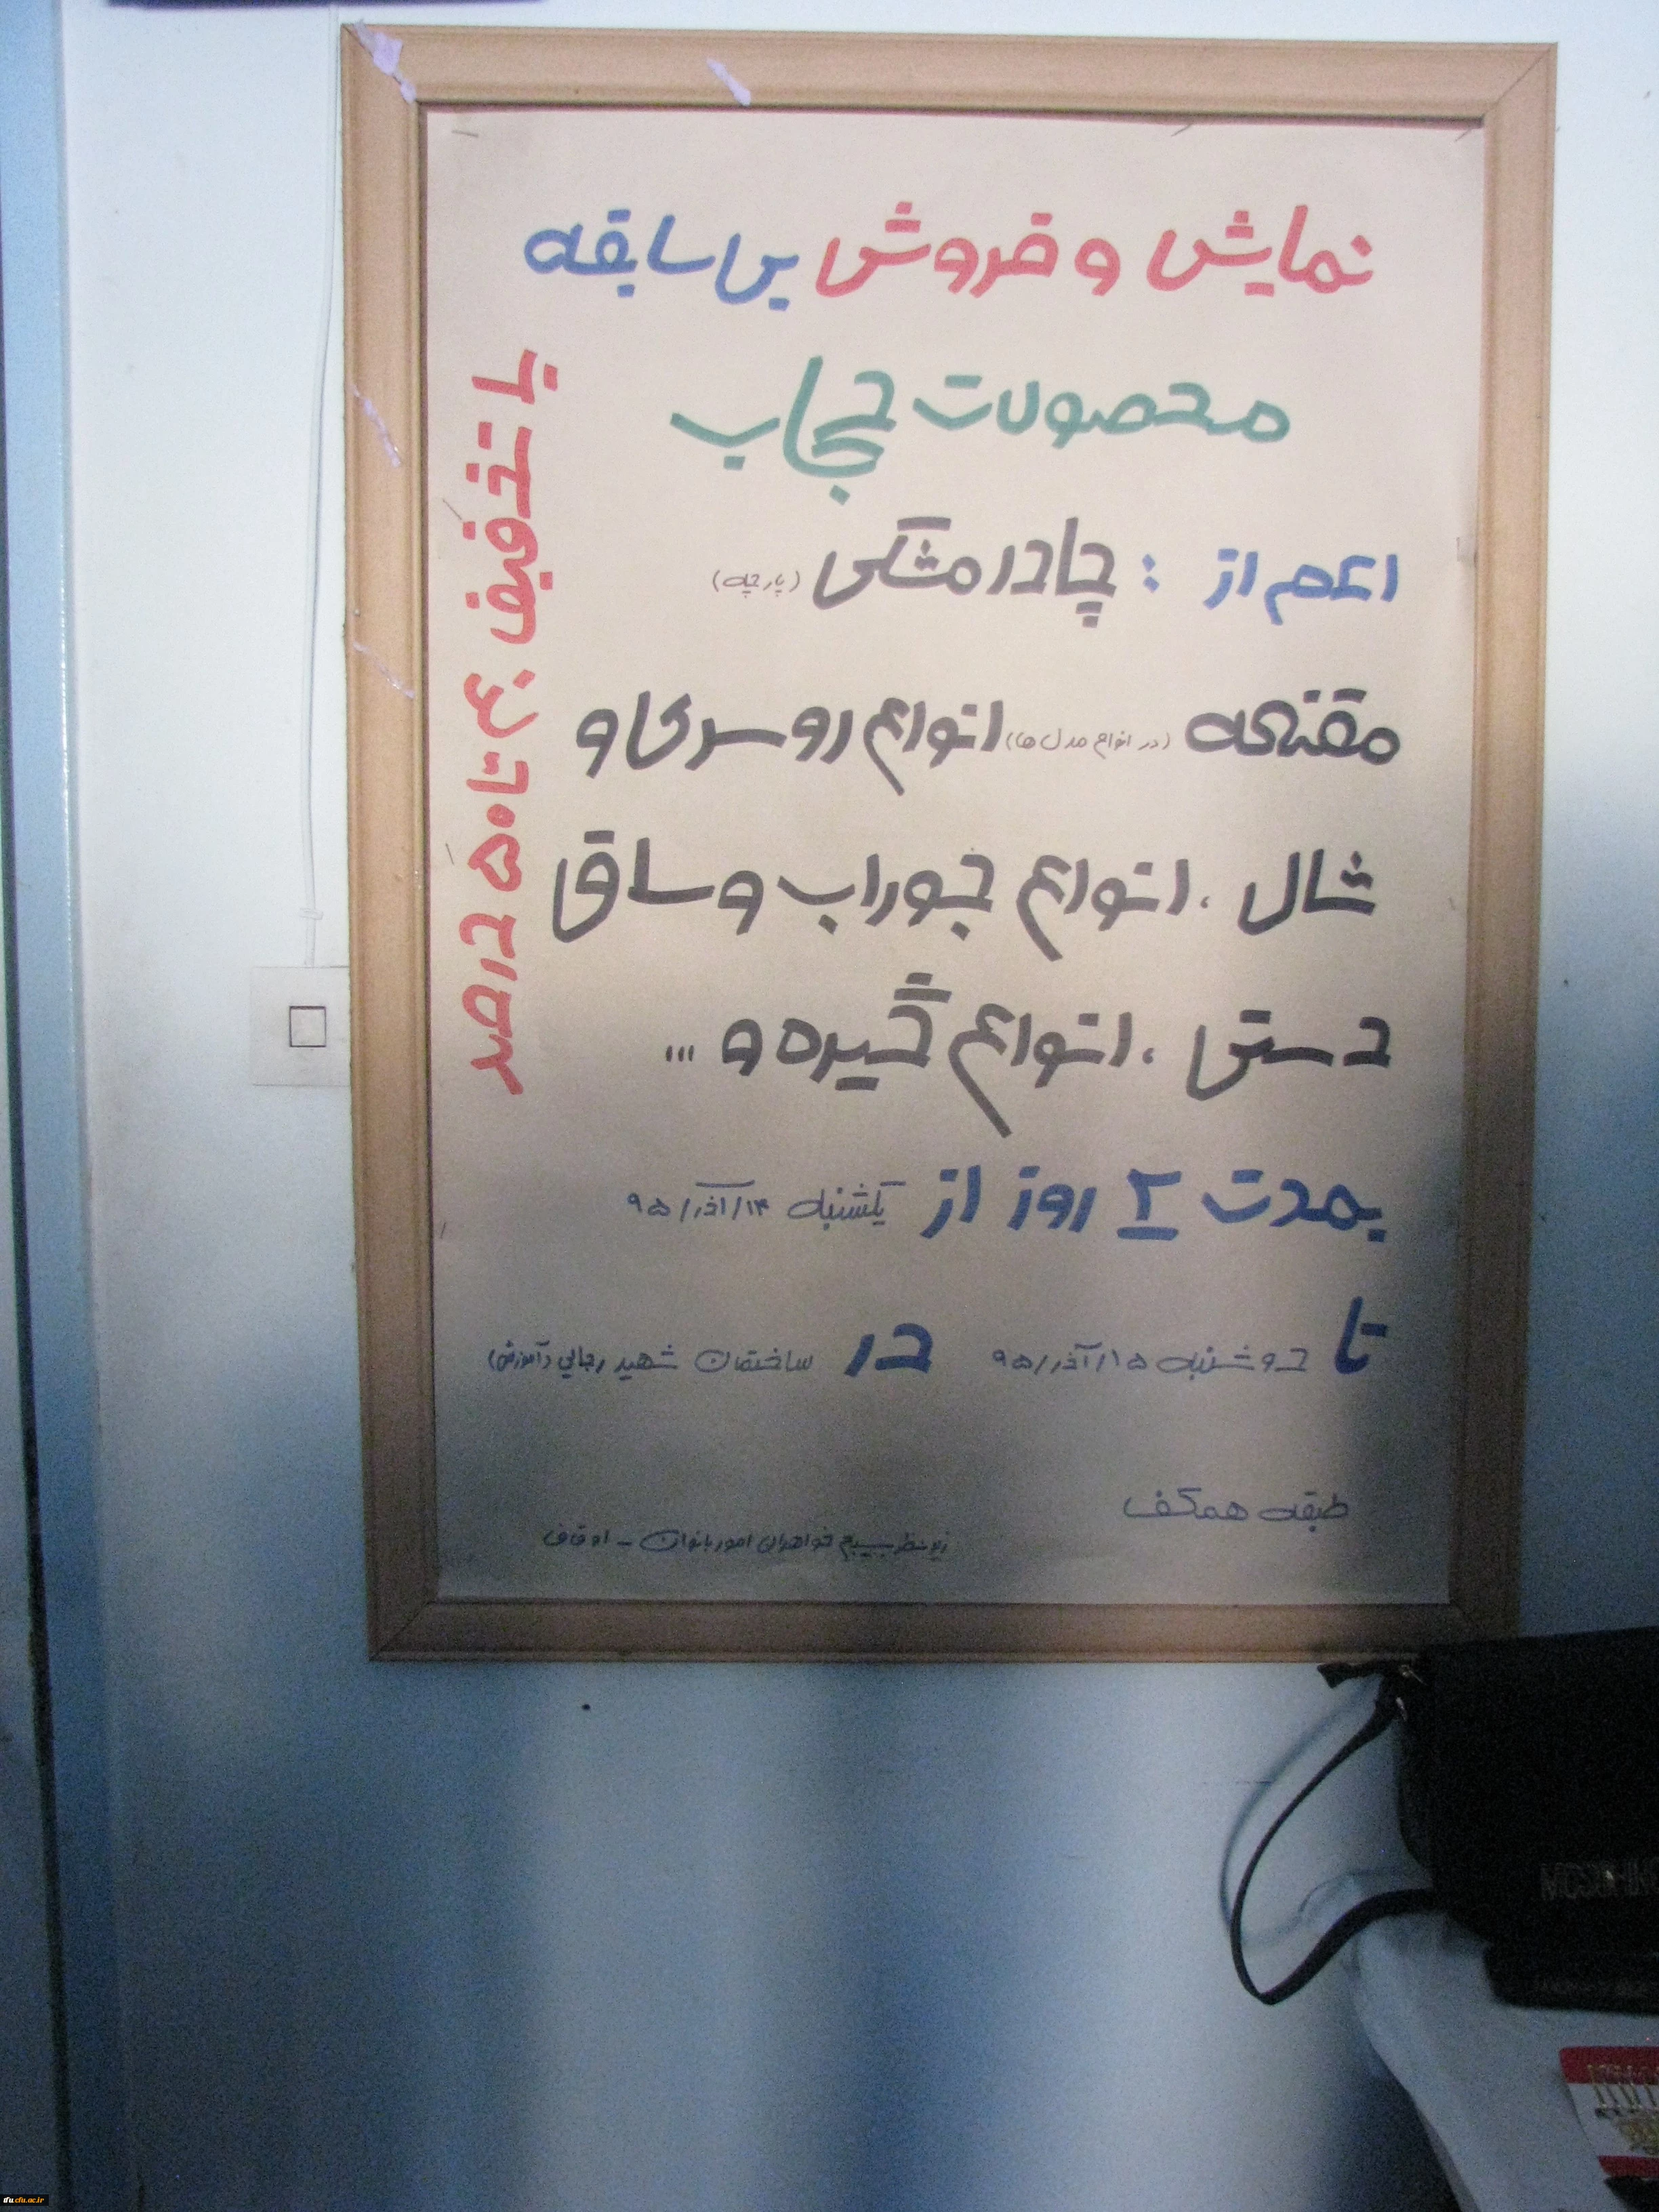 نمایش و فروش بی سابقه
محصولات حجاب
اعم از : چادر مشکی (پارچه)
مقنعه (در انواع مدل ها) انواع روسری و
شال ، انواع جوراب و ساق
دستی ، انواع گیره و ...
بمدت ۲ روز از یکشنبه ۱۴/آذر/۹۵
تا دوشنبه ۱۵/آذر/۹۵ در ساختمان شهید رجایی (آموزش)
طبقه همکف
زیر نظر بسیج خواهران امور بانوان - اوقاف
با تخفیف ۳۰ تا ۵۰ درصد
MOSCHINO
tfu.cfu.ac.ir